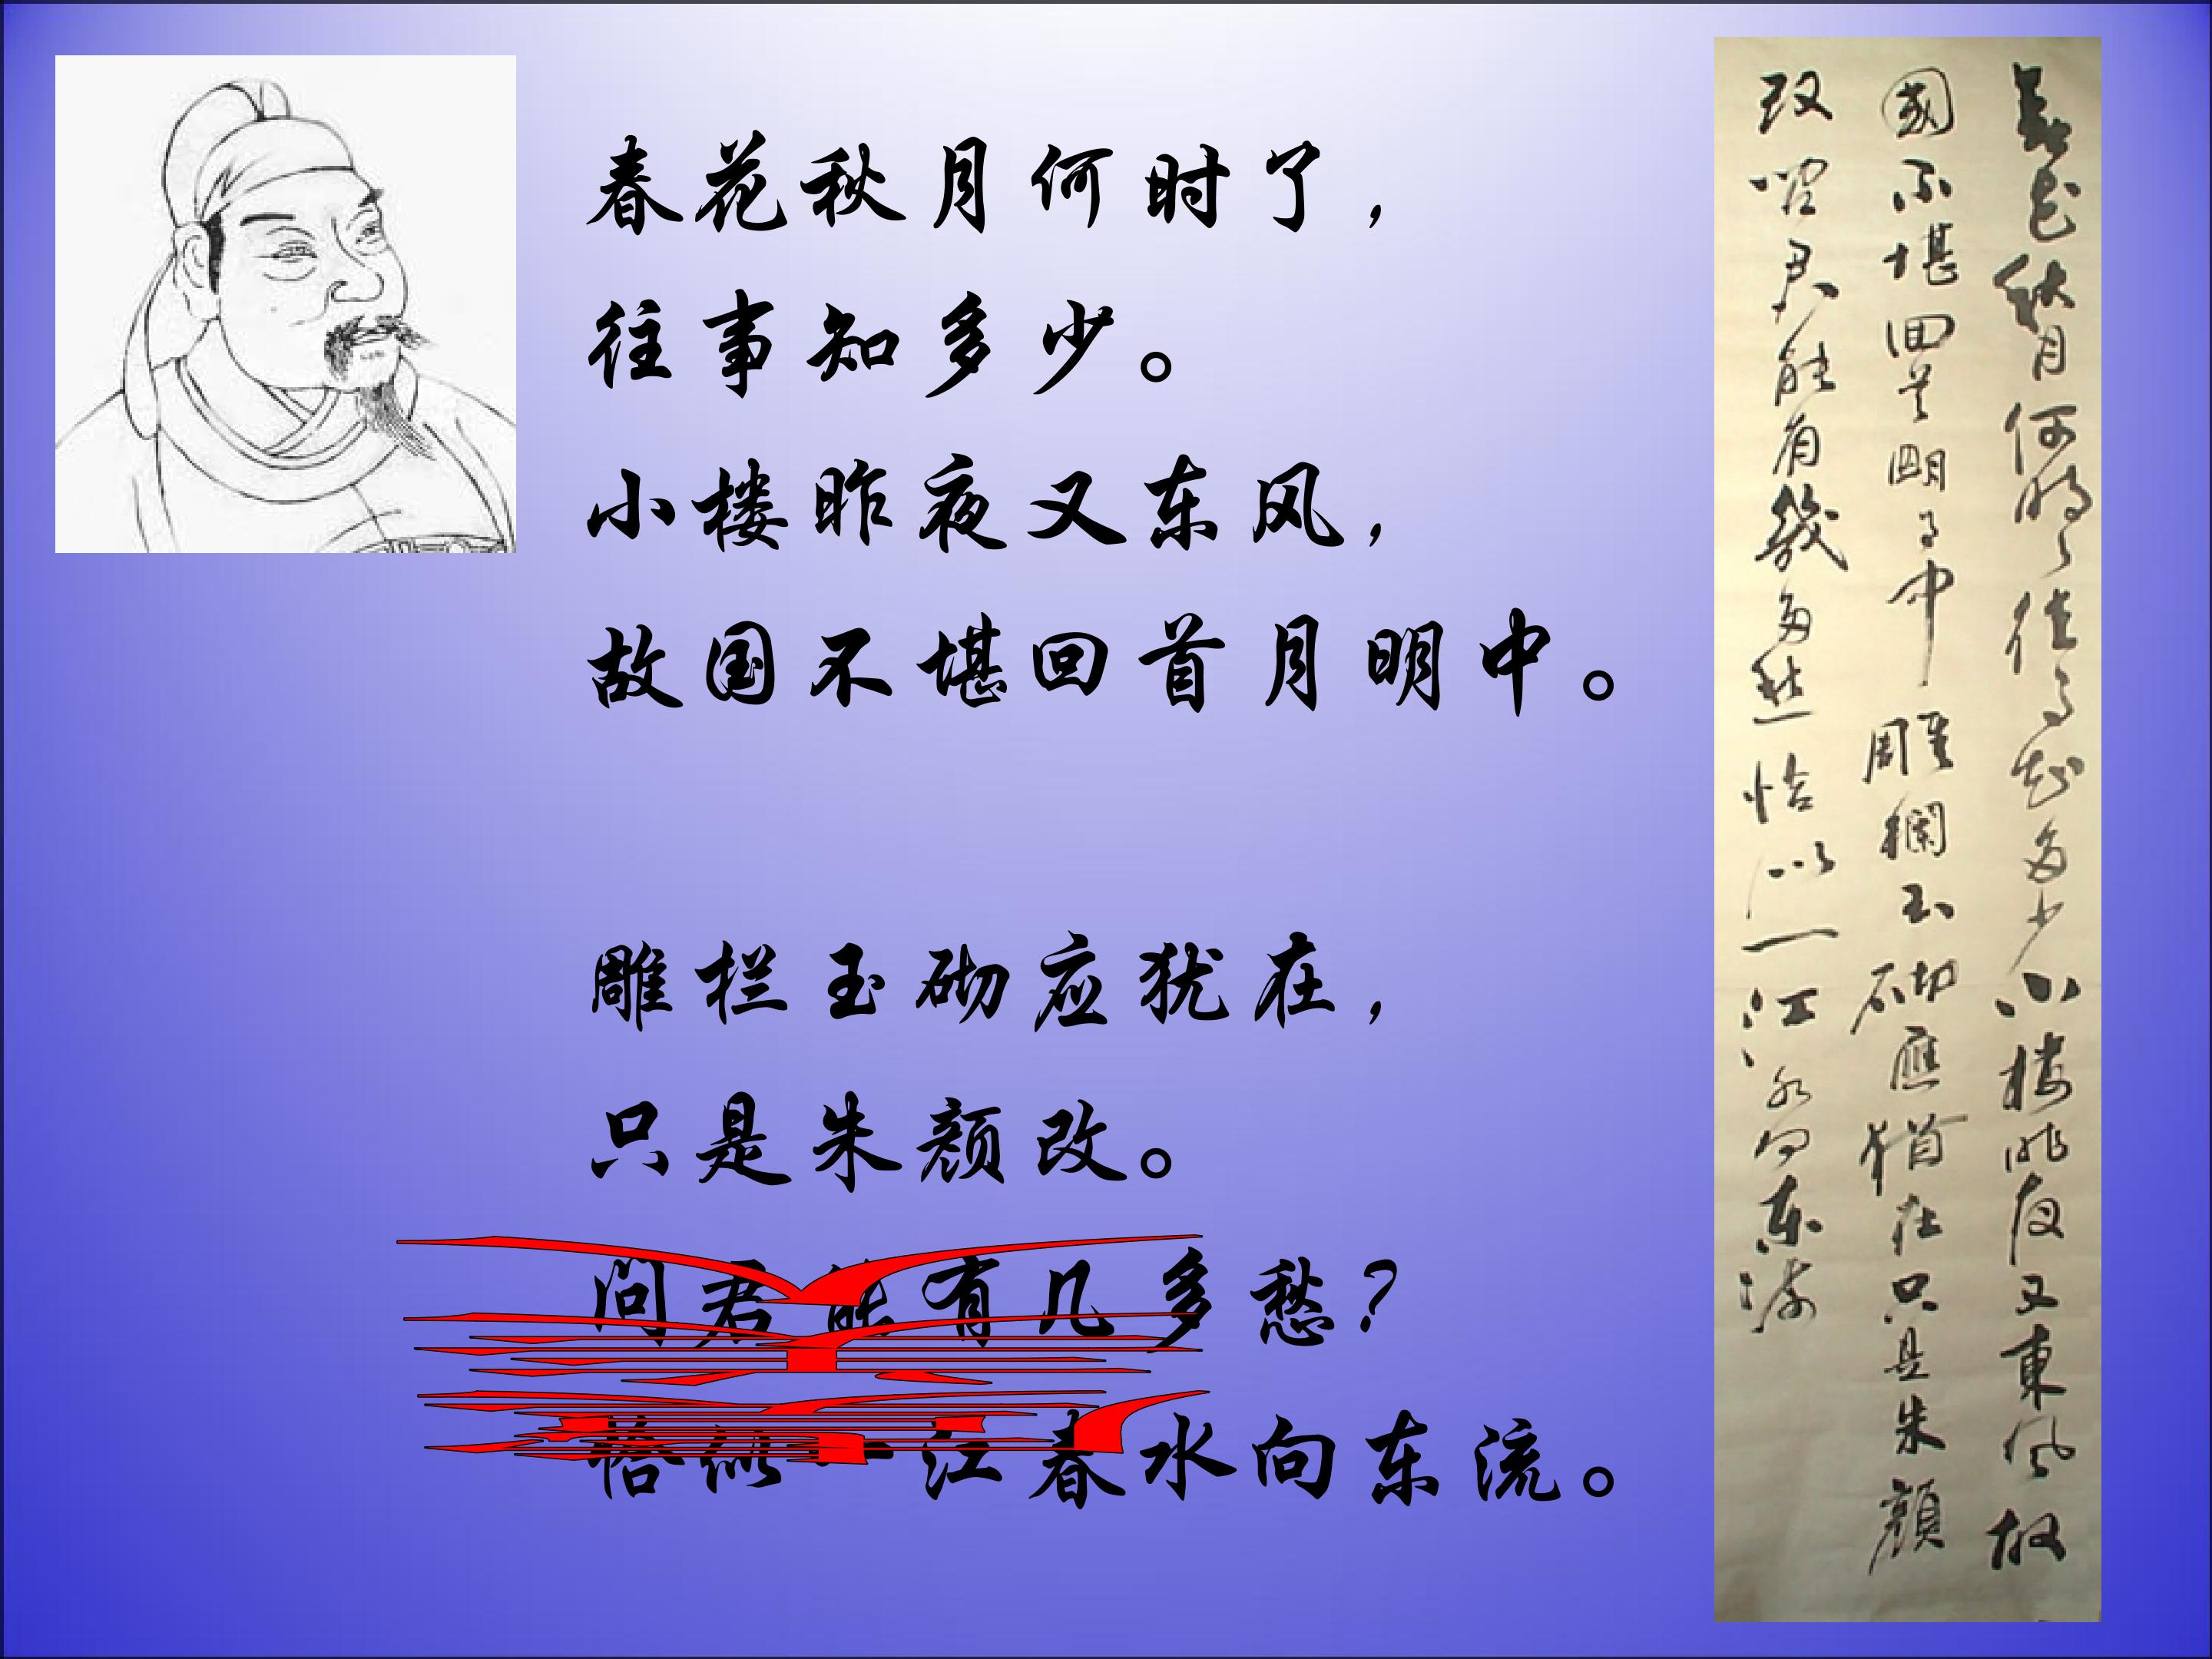 春花秋月何时了，
往事知多少。
小楼昨夜又东风，
故国不堪回首月明中。
雕栏玉砌应犹在，
只是朱颜改。
问君能有几多愁？
恰似一江春水向东流。
春花秋月何时了往事知多少小楼昨夜又東风故
國不堪回首明月中雕欄玉砌應猶在只是朱顏
改問君能有幾多愁恰似一江春水向东流